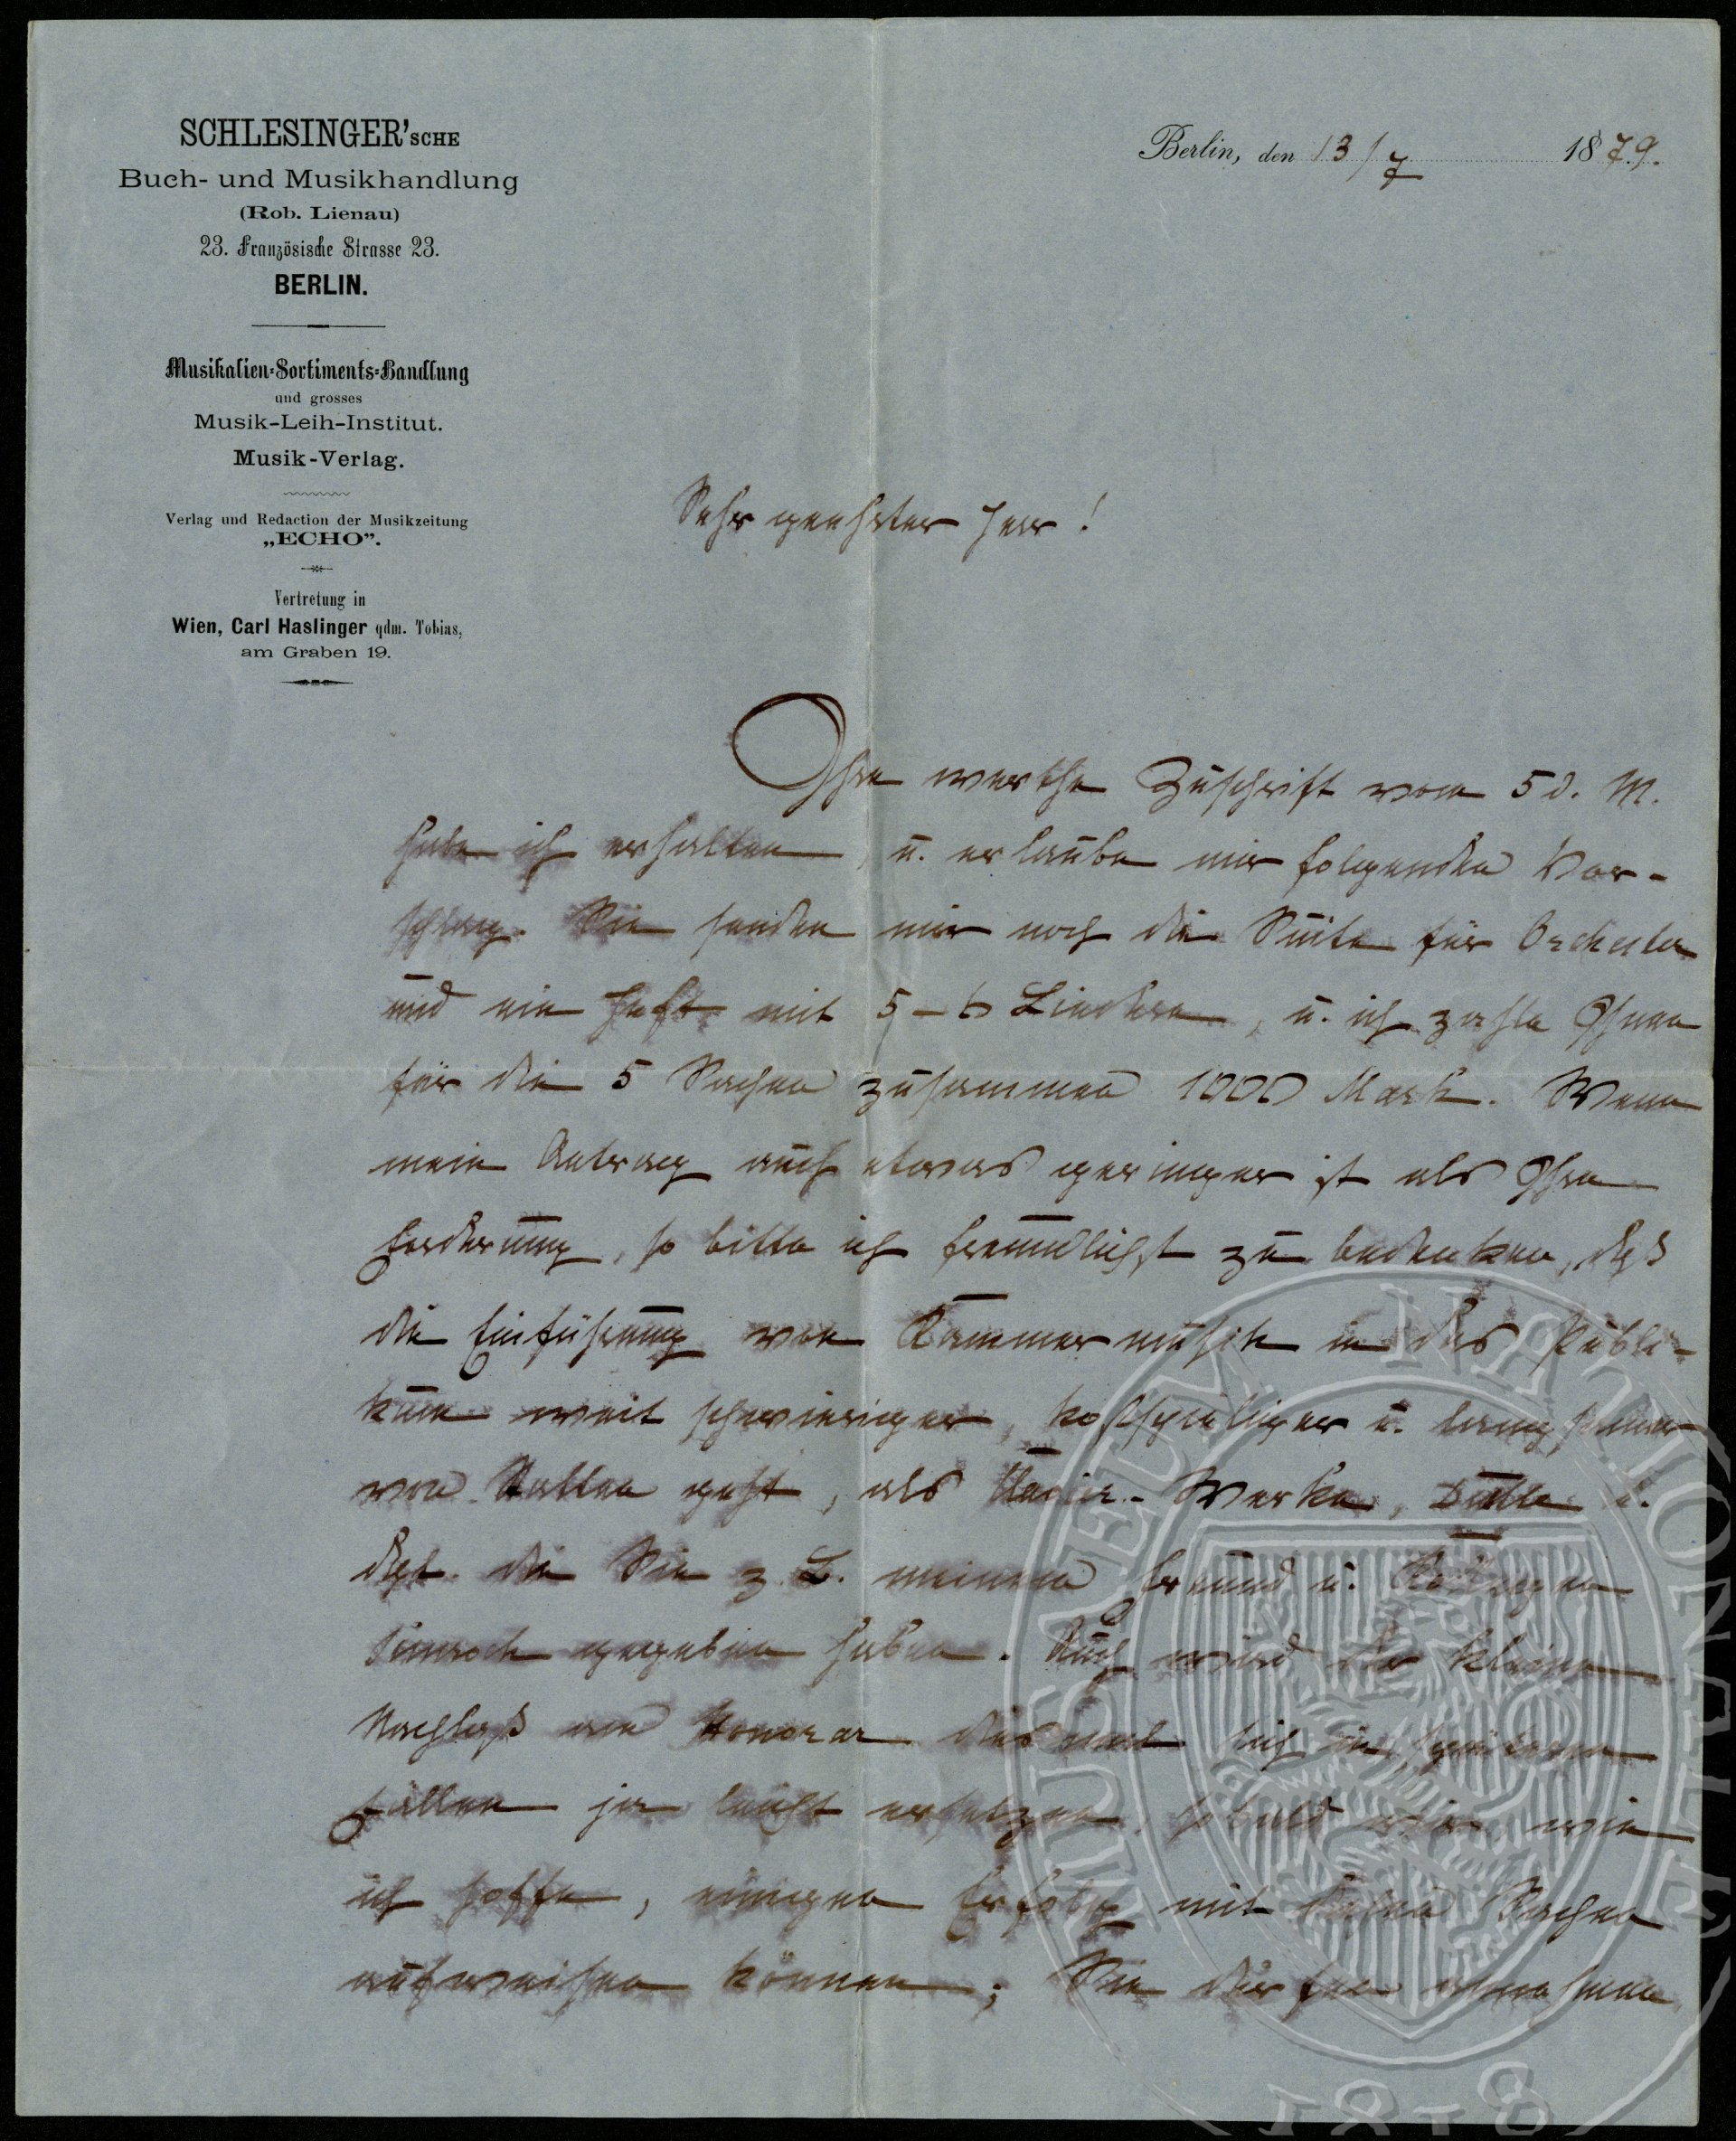 SCHLESINGER'SCHE
Buch- und Musikhandlung
(Rob. Lienau)
23. Französische Strasse 23.
BERLIN.
Musikalien-Sortiments-Handlung
und grosses
Musik-Leih-Institut.
Musik-Verlag.
Verlag und Redaction der Musikzeitung
„ECHO”.
Vertretung in
Wien, Carl Haslinger qdm. Tobias,
am Graben 19.
Berlin, den 13/7 1879.
Sehr geehrter Herr!
Ihre werthe Zuschrift vom 5 d. M.
habe ich erhalten, u. erlaube mir folgenden Vor-
schlag. Sie senden mir noch die Suite für Orchester
und ein Heft mit 5-6 Liedern, u. ich zahle Ihnen
für die 5 Sachen zusammen 1000 Mark. Wenn
mein Antrag auch etwas geringer ist als Ihre
Forderung, so bitte ich freundlichst zu bedenken, daß
die Einführung von Kammermusik in das Publi-
kum weit schwieriger, kostspieliger u. langsamer
von Statten geht, als Clavier-Werke, Duette u.
dgl. die Sie z. B. meinem Freund u. Kollegen
Simrock gegeben haben. Auch wird der kleine
Nachlaß am Honorar diesmal sich in späteren
Fällen ja leicht ersetzen, sobald wir, wie
ich hoffe, einigen Erfolg mit Ihren Sachen
aufweisen können; Sie dürfen annehmen
MUSAEUM NATIONALE
1818